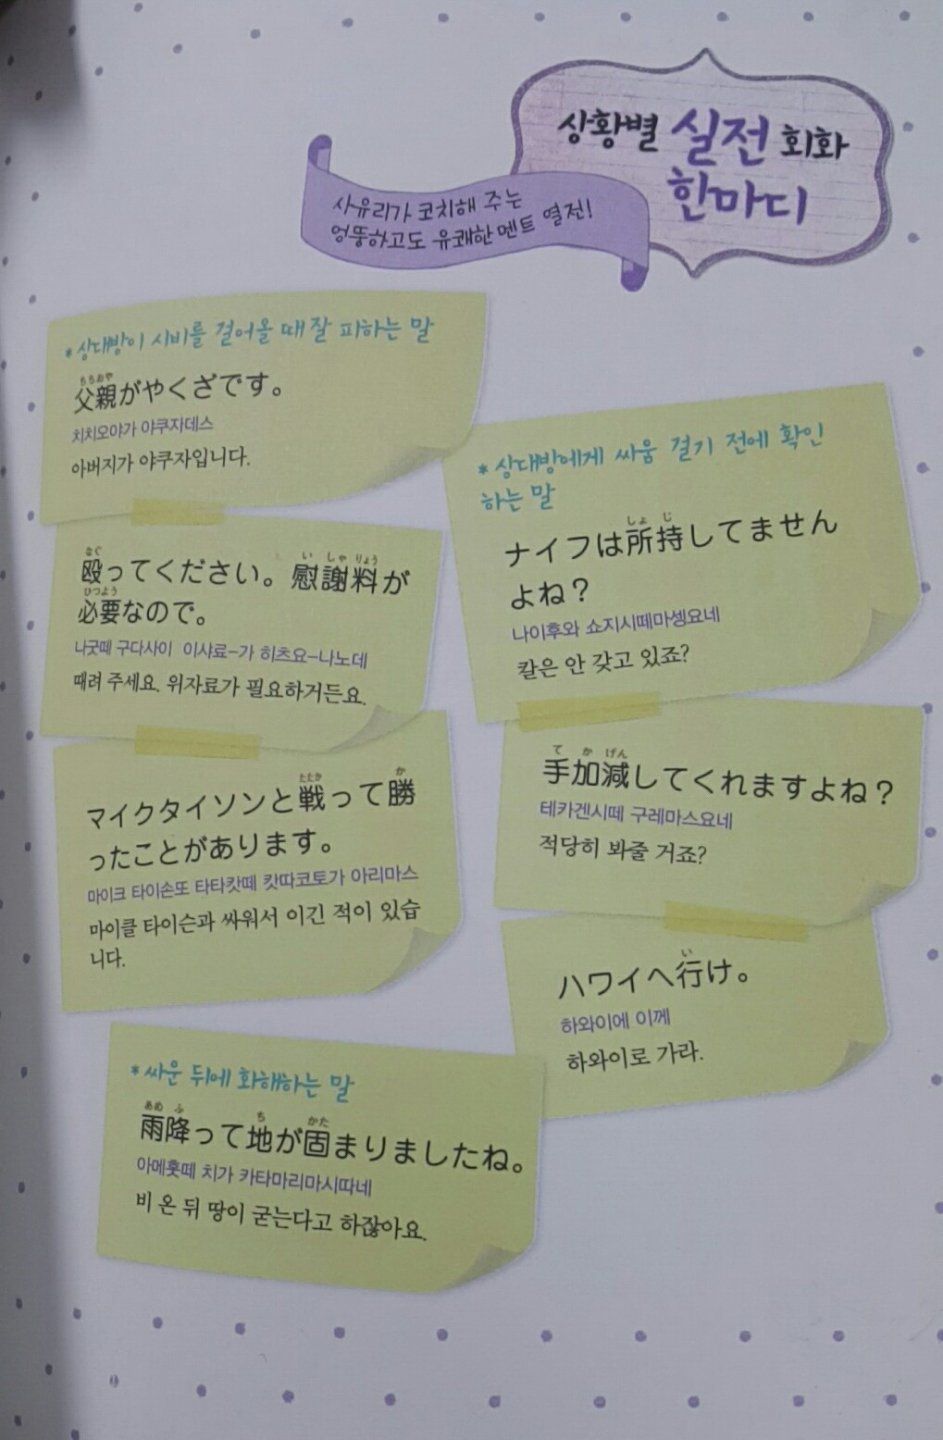 상황별 실전 회화
한마디
사유리가 코치해 주는
엉뚱하고도 유쾌한 멘트 열전!
*상대방이 시비를 걸어올 때 잘 피하는 말
ちちおや
父親がやくざです。
치치오야가 야쿠자데스
아버지가 야쿠자입니다.
なぐ い しゃ りょう
殴ってください。慰謝料が
ひつよう
必要なので。
나굿떼 구다사이 이샤료-가 히츠요-나노데
때려 주세요. 위자료가 필요하거든요.
たたか か
マイクタイソンと戦って勝
ったことがあります。
마이크 타이손또 타타캇떼 캇따코토가 아리마스
마이클 타이슨과 싸워서 이긴 적이 있습
니다.
*상대방에게 싸움 걸기 전에 확인
하는 말
しょ じ
ナイフは所持してません
よね？
나이후와 쇼지시떼마셍요네
칼은 안 갖고 있죠?
て か げん
手加減してくれますよね？
테카겐시떼 구레마스요네
적당히 봐줄 거죠?
い
ハワイへ行け。
하와이에 이께
하와이로 가라.
*싸운 뒤에 화해하는 말
あめ ふ ち かた
雨降って地が固まりましたね。
아메훗떼 치가 카타마리마시따네
비 온 뒤 땅이 굳는다고 하잖아요.